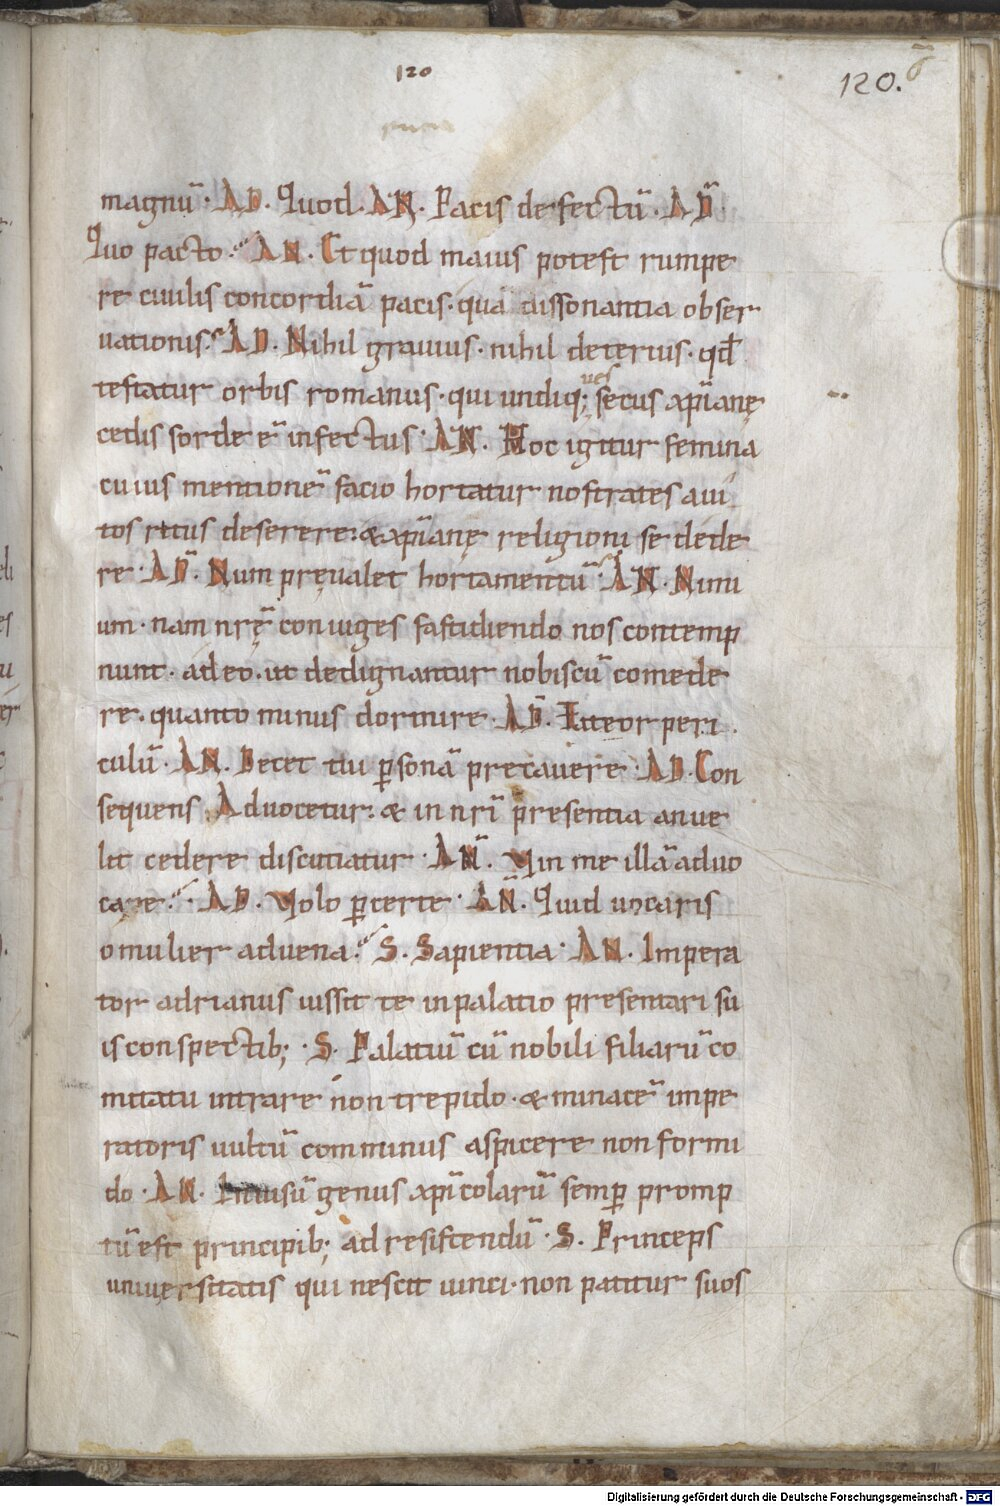 120
120.
magnū· AD. Quod. AN. Facis defectū. AD̄
Quo pacto. AN. Et quod maius potest rumpe
re ciuilis concordiā pacis. quā dissonantia obser
uationis. AD. Nihil grauius. nihil deterius. qđ
testatur orbis romanus. qui undiq; secus apianę
ues
cedis sorde ē infectus. AN. Hoc igitur femina
cuius mentionē facio hortatur nostrates aui
tos ritus deserere. & apianę religioni se dede
re. AD̄. Num pręualet hortamentū. AN. Nimi
um. nam nrę coniuges fastidiendo nos contemp
nunt. adeo. ut dedignantur nobiscū comede
re. quanto minus dormire. AD̄. Fateor peri
culū. AN. Decet tui ꝑsonā precauere. AD. Con
sequens. Aduocetur. & in nrī presentia an ue
lit cedere discutiatur. AN̄. Vin me illā aduo
care. AD. Volo ꝑcerte. AN̄. Quid uocaris
o mulier aduena. S. Sapientia. AN. Impera
tor adrianus iussit te in palatio presentari su
is conspectib; S. Palatiū cū nobili filiarū co
mitatu intrare non trepido. & minacē impe
ratoris uultū comminus aspicere non formi
do. AN. Inuisū genus apīcolarū semꝑ promp
tū est principib; ad resistendū. S. Princeps
uniuersitatis qui nescit uinci. non patitur suos
Digitalisierung gefördert durch die Deutsche Forschungsgemeinschaft - DFG